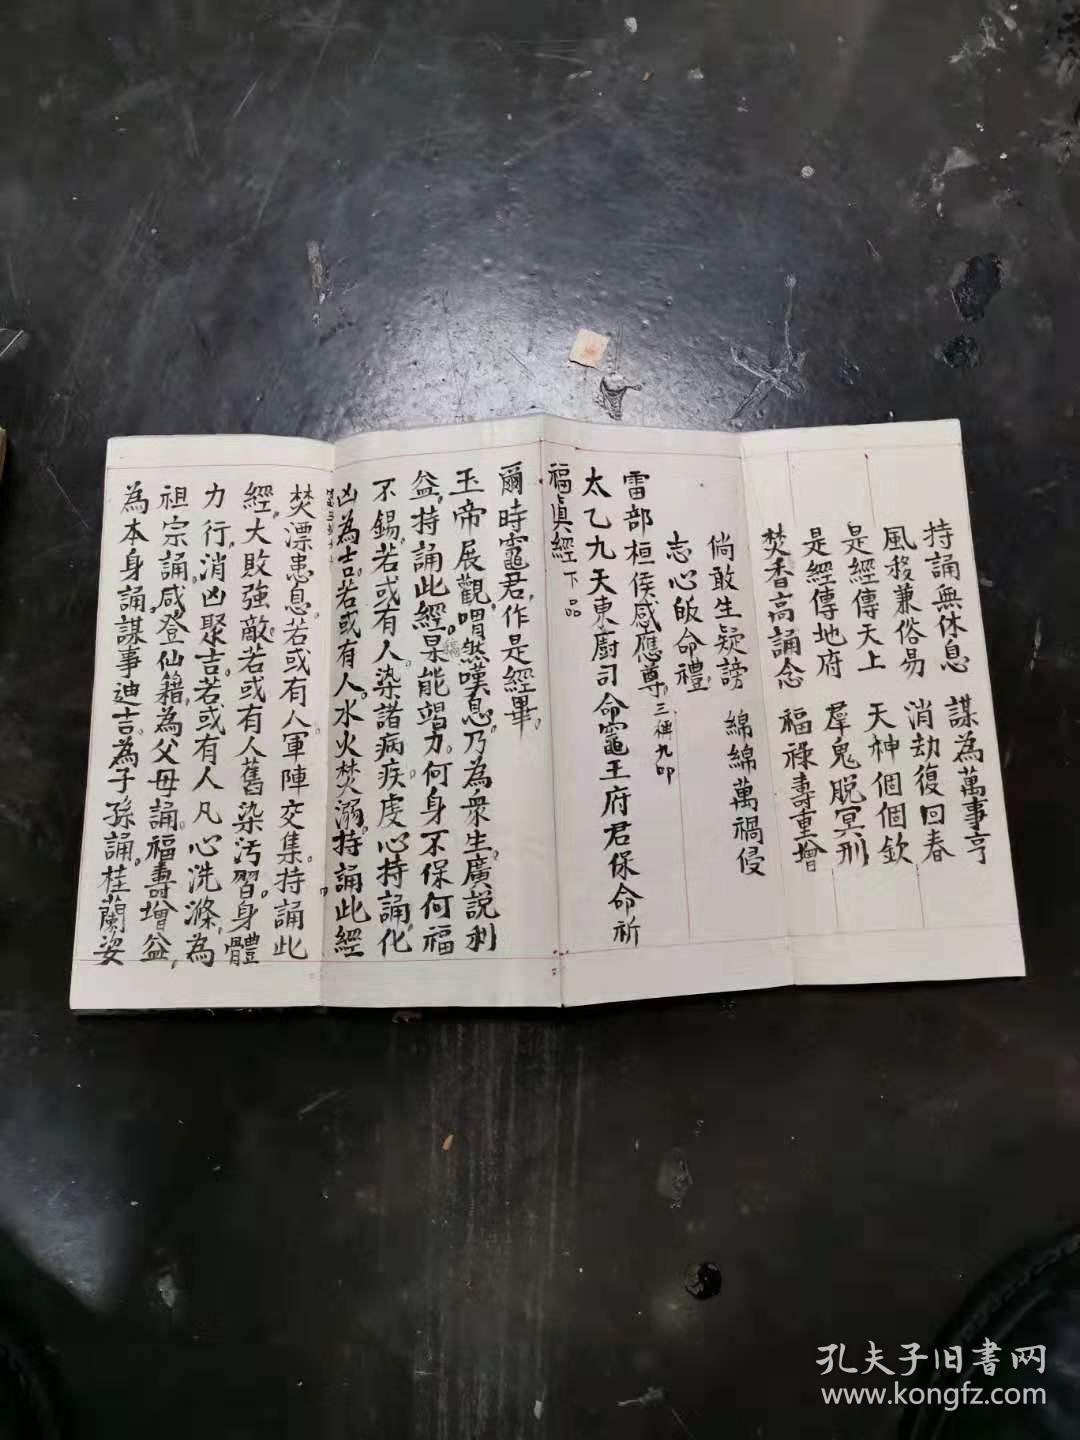 持誦無休息　謀為萬事亨
風移兼俗易　消劫復回春
是經傳天上　天神個個欽
是經傳地府　羣鬼脫冥刑
焚香高誦念　福祿壽重增
倘敢生疑謗　綿綿萬禍侵
志心皈命禮
雷部桓侯感應尊。三稱九叩
太乙九天東廚司命竈王府君保命祈
福眞經下品
爾時竈君，作是經畢。
玉帝展觀，喟然嘆息。乃為衆生。廣説利
益。持誦此經。杲能竭力。何身不保何福
不錫。若或有人。染諸病疾虔心持誦，化
凶為吉。若或有人。水火焚溺。持誦此經
焚漂患息。若或有人軍陣交集。持誦此
經。大敗強敵。若或有人舊染汚習。身體
力行，消凶聚吉。若或有人凡心洗滌，為
祖宗誦。咸登仙籍。為父母誦。福壽增益，
為本身誦。謀事迪吉。為子孫誦。桂蘭姿
孔夫子旧書网
www.kongfz.com